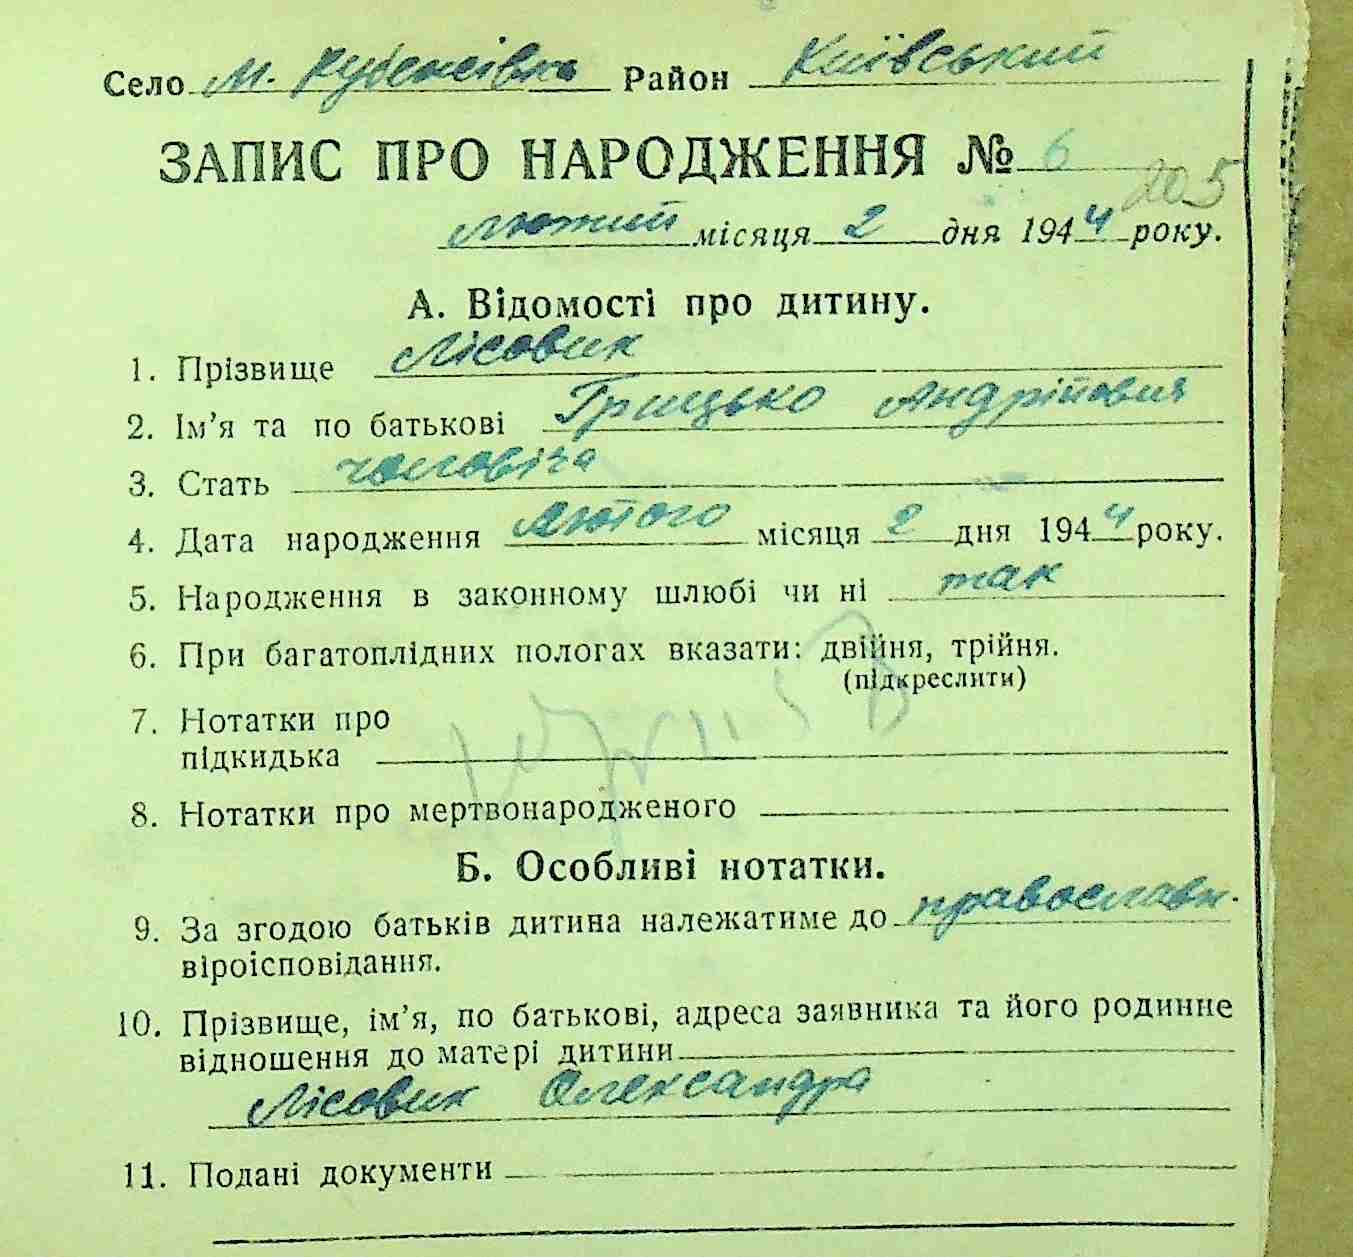 Село М. Рубежівка Район Київський
ЗАПИС ПРО НАРОДЖЕННЯ № 6
205
лютий місяця 2 дня 1944 року.
А. Відомості про дитину.
1. Прізвище Лісовик
2. Ім’я та по батькові Грицько Андрійович
3. Стать чоловіча
4. Дата народження лютого місяця 2 дня 1944 року.
5. Народження в законному шлюбі чи ні так
6. При багатоплідних пологах вказати: двійня, трійня.
(підкреслити)
7. Нотатки про
підкидька
8. Нотатки про мертвонародженого
Б. Особливі нотатки.
9. За згодою батьків дитина належатиме до православн.
віроісповідання.
10. Прізвище, ім’я, по батькові, адреса заявника та його родинне
відношення до матері дитини
Лісовик Олександра
11. Подані документи